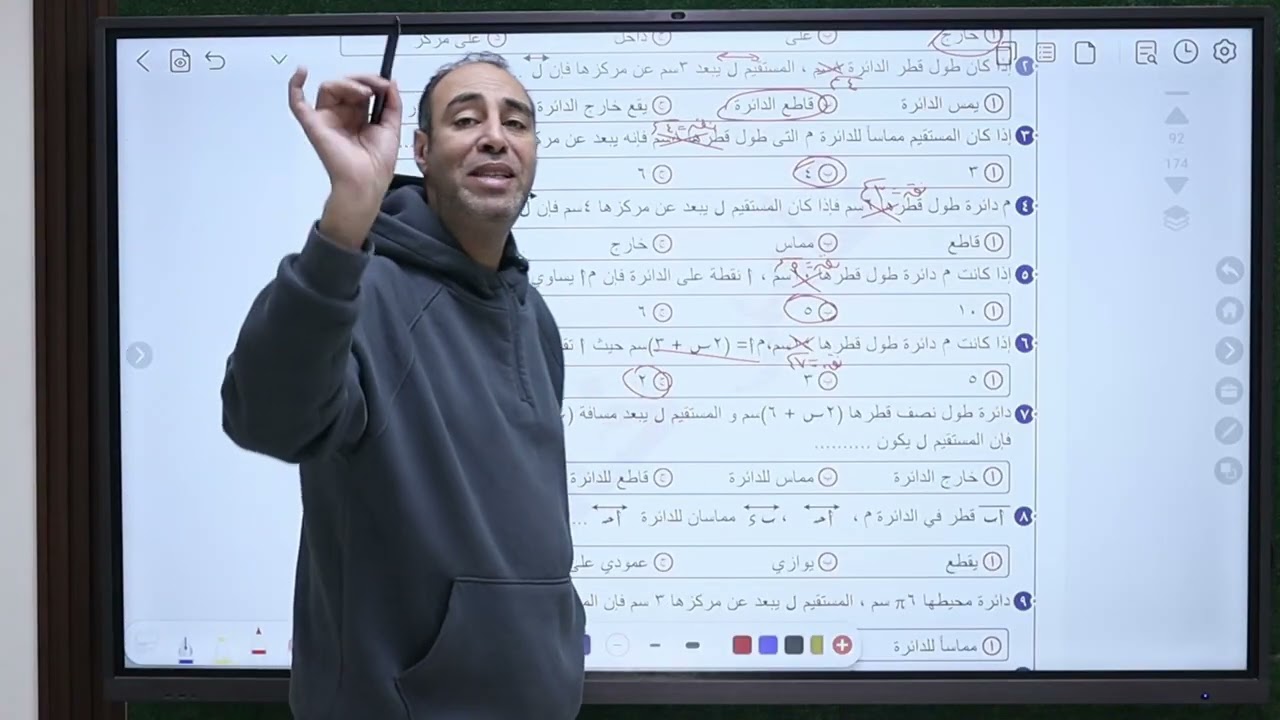 أ خارج ب على ج داخل د على مركز
٢ إذا كان طول قطر الدائرة ، المستقيم ل يبعد ٣سم عن مركزها فإن ل
أ يمس الدائرة ب قاطع الدائرة ج يقع خارج الدائرة
نق = ٤
٣ إذا كان المستقيم مماساً للدائرة م التى طول قطرها سم فإنه يبعد عن
أ ٣ ب ٤ ج ٦
٤ م دائرة طول قطرها سم فإذا كان المستقيم ل يبعد عن مركزها ٤سم فإن ل
أ قاطع ب مماس ج خارج
٥ إذا كانت م دائرة طول قطرها سم ، أ نقطة على الدائرة فإن م أ يساوي
أ ١٠ ب ٥ ج ٦
٦ إذا كانت م دائرة طول قطرها سم، م أ = (٢س + ٣)سم حيث أ
نق = ٧
أ ٥ ب ٣ ج ٢
٧ دائرة طول نصف قطرها (٢س + ٦)سم و المستقيم ل يبعد مسافة (
فإن المستقيم ل يكون ..........
أ خارج الدائرة ب مماس للدائرة ج قاطع للدائرة
٨ أب قطر في الدائرة م ، أحـ ، ب ء مماسان للدائرة أحـ ...
أ يقطع ب يوازي ج عمودي على
٩ دائرة محيطها ٦π سم ، المستقيم ل يبعد عن مركزها ٣ سم فإن
أ مماساً للدائرة
92
174